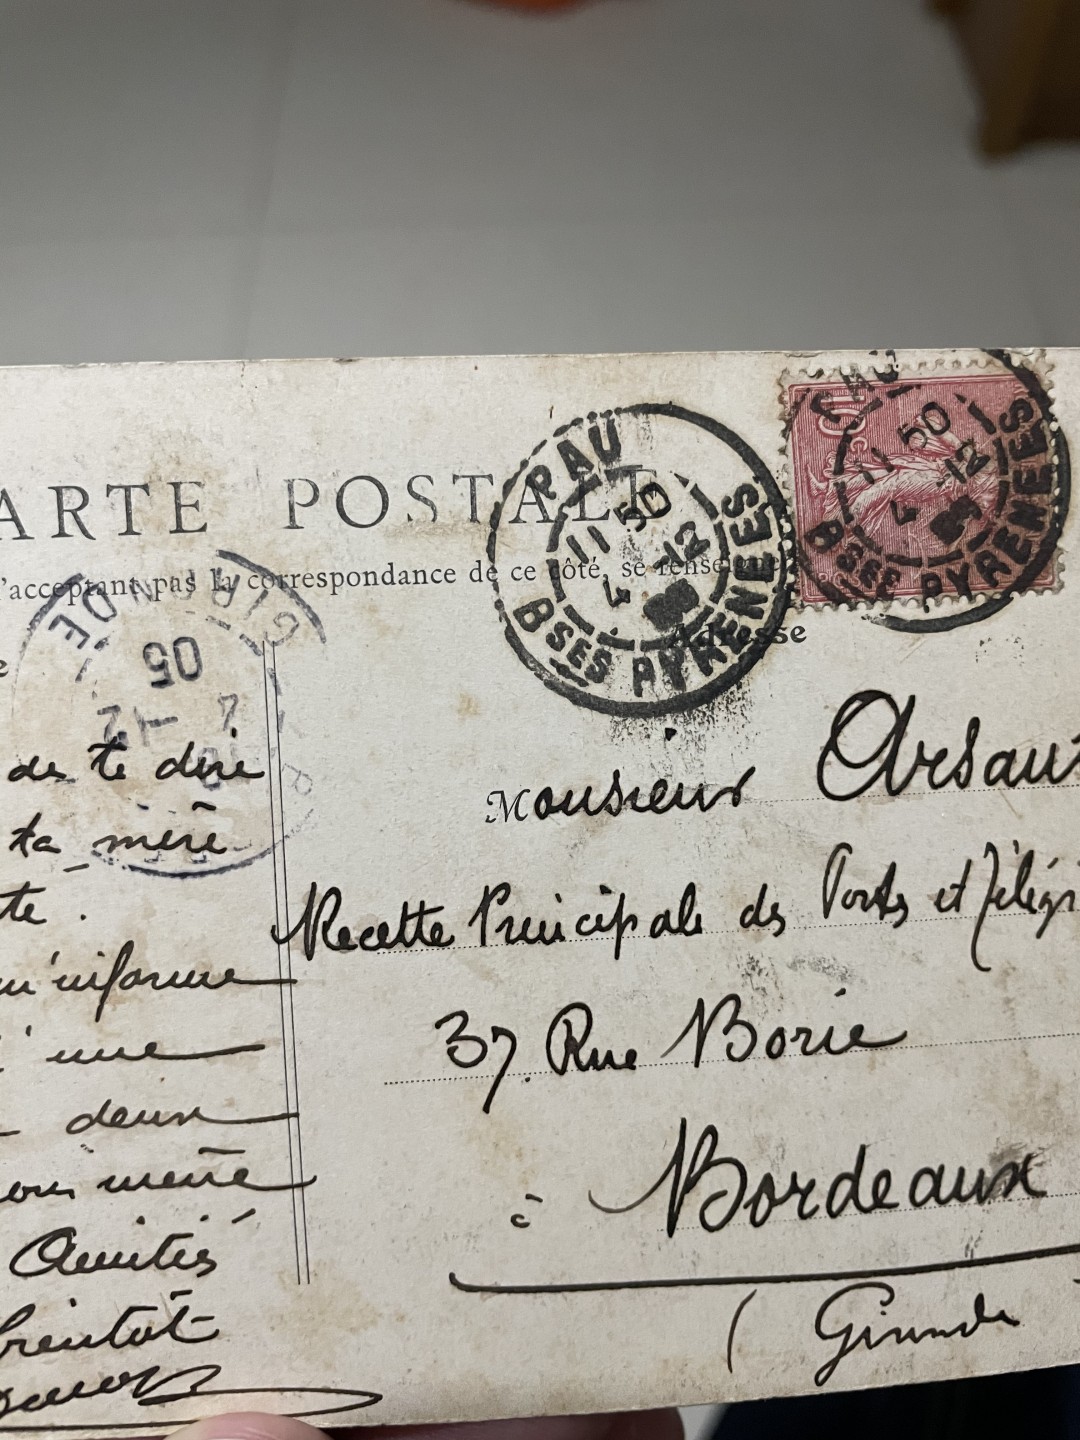 ARTE POSTALE
'acceptant pas la correspondance de ce côté, se renseigner
Adresse
PAU
11 50
4 -12
BSES PYRENEES
PAU
11 50
4 -12
BSES PYRENEES
10 c
GIRONDE
05
-12
de te dire
ta mère
te.
m'informe
une
deux
mène
Amitiés
bientôt
Monsieur
Recette Principale des Postes et Télégr
37. Rue Borie
à Bordeaux
(Gironde